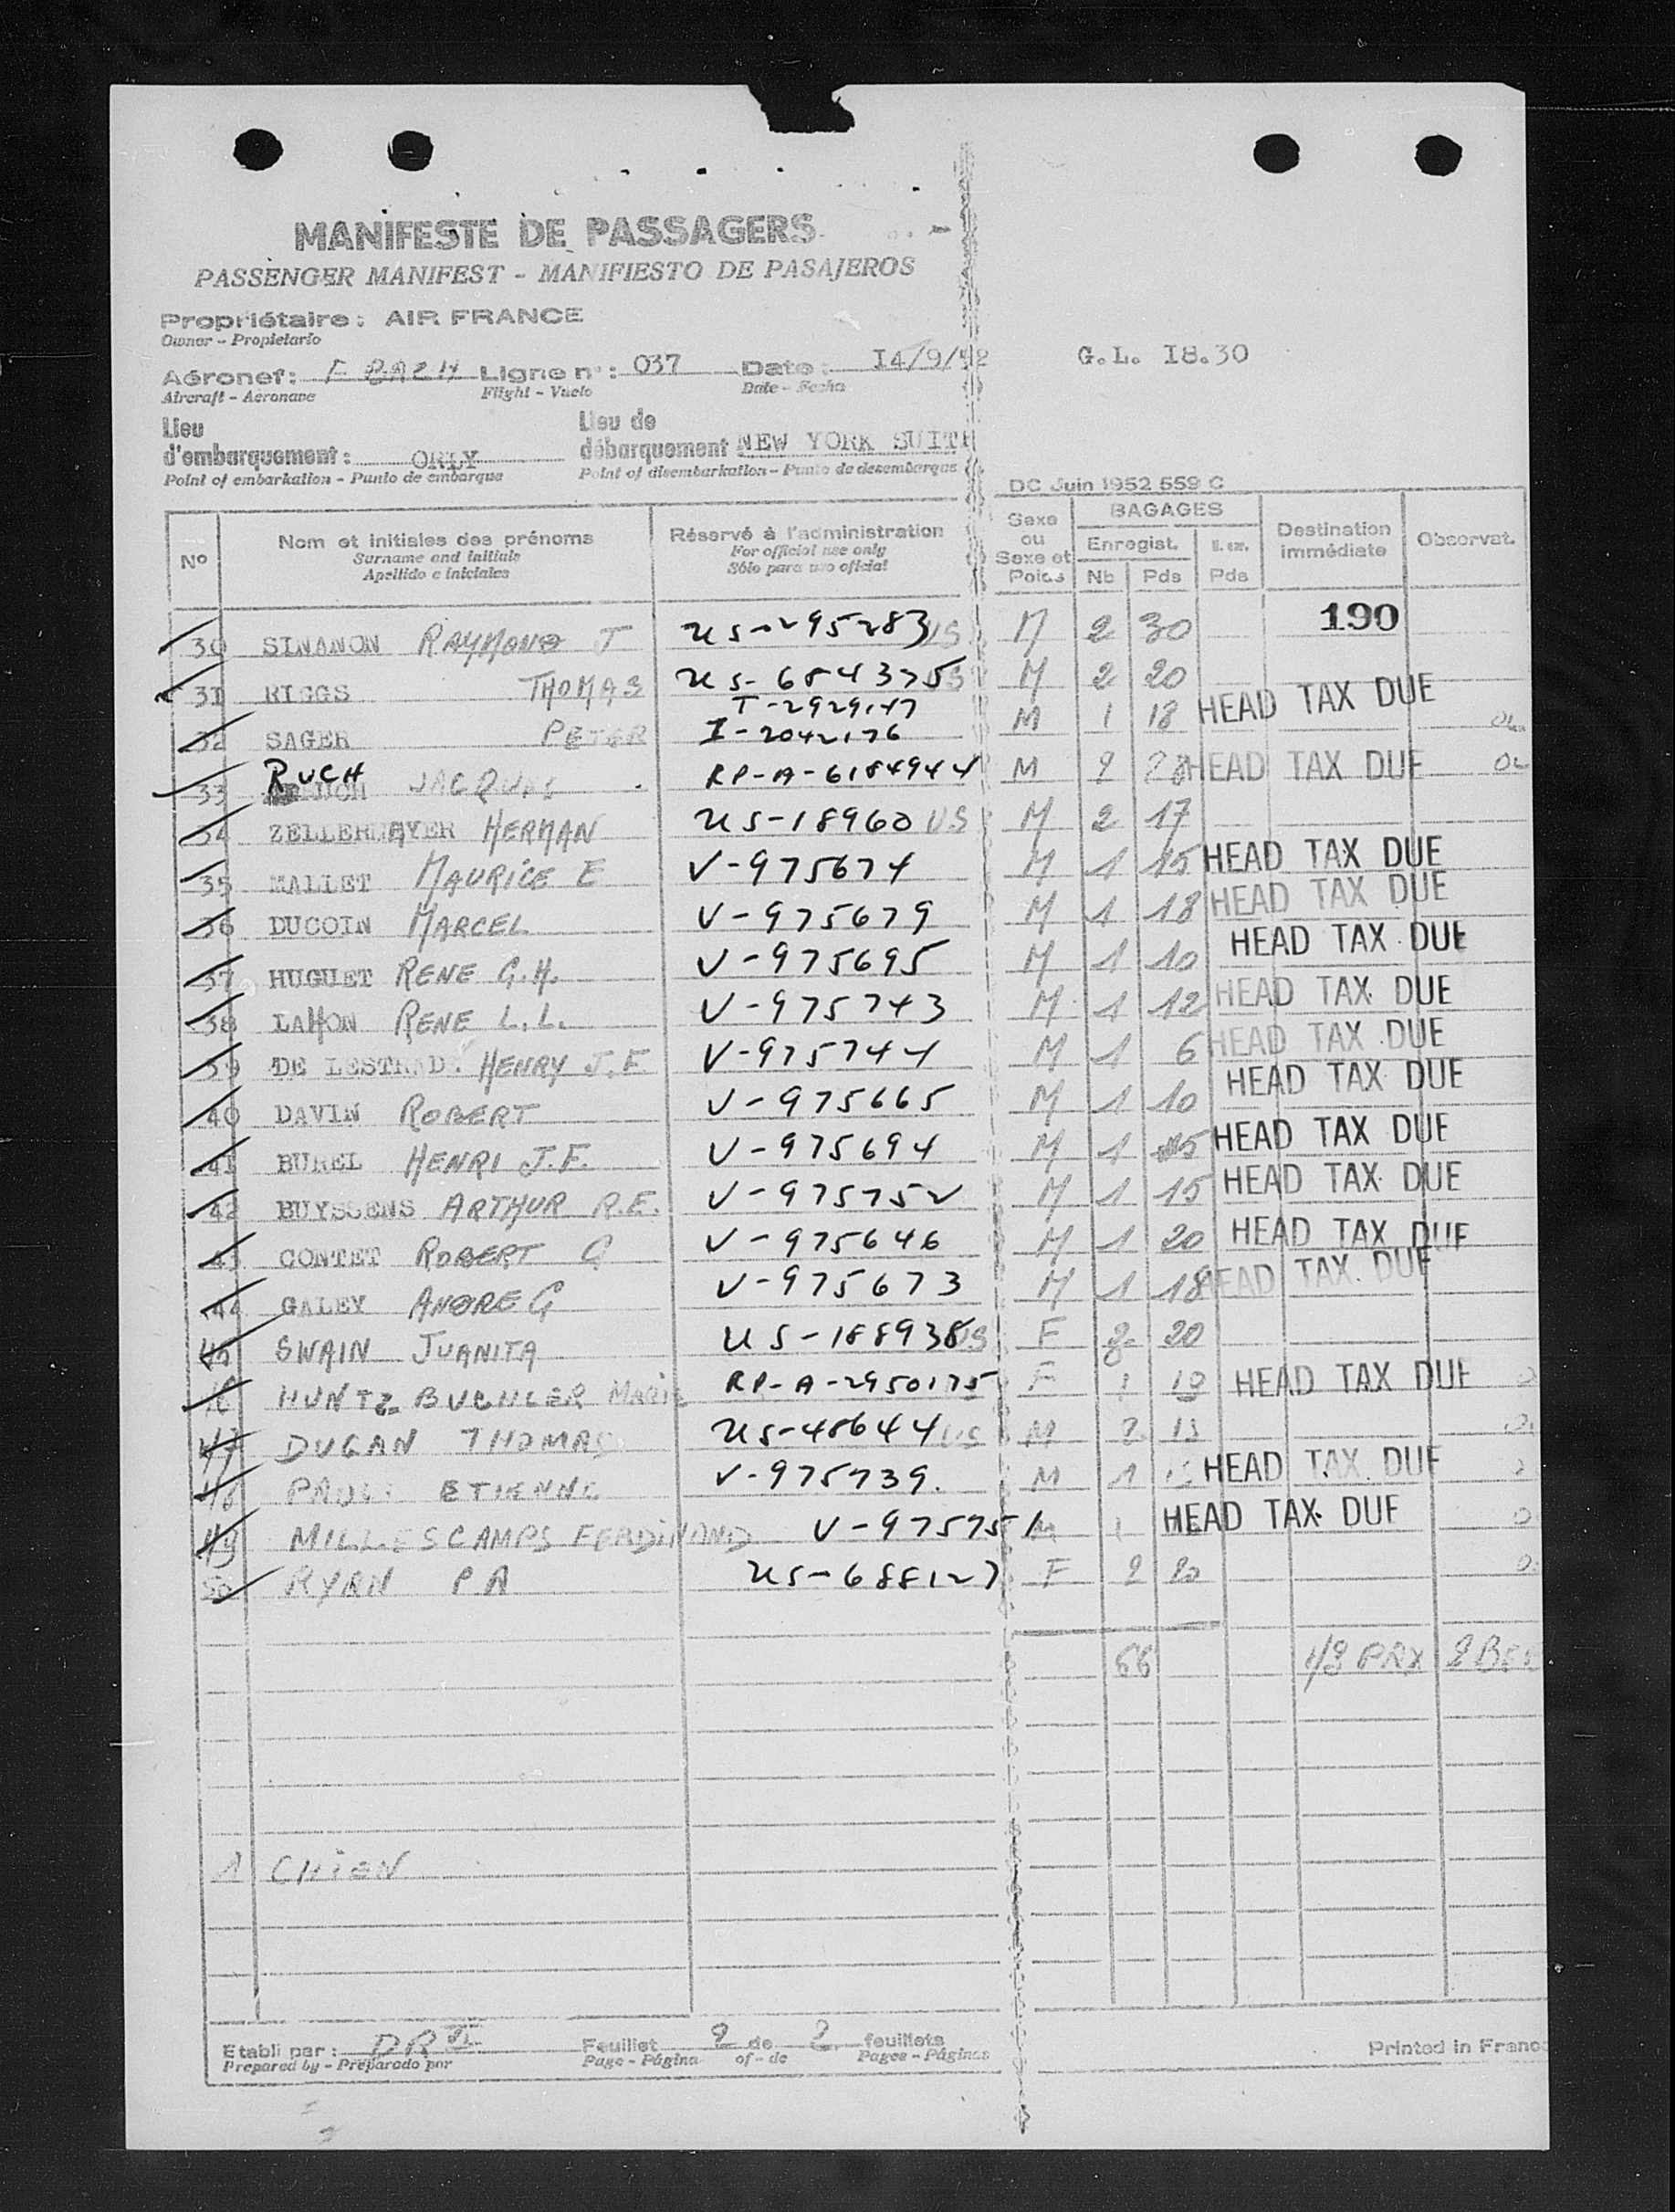 MANIFESTE DE PASSAGERS
PASSENGER MANIFEST - MANIFIESTO DE PASAJEROS
Propriétaire : AIR FRANCE
Owner - Propietario
Aéronef : F BAZH Ligne n° : 037 Date : I4/9/52 G.L. I8.30
Aircraft - Aeronave Flight - Vuelo Date - Fecha
Lieu d'embarquement : ORLY Lieu de débarquement NEW YORK SUITE
Point of embarkation - Punto de embarque Point of disembarkation - Punto de desembarque
DC Juin 1952 559 C
Nº Nom et initiales des prénoms Réservé à l'administration Sexe ou Sexe et Poids BAGAGES Destination immédiate Observat.
Surname and initials For official use only Enregist.
Apellido e iniciales Sólo para uso oficial Nb Pds Pds
190
30 SINANON RAYMOND T US-295283 US M 2 30
31 RIGGS THOMAS US-684375 S M 2 20
T-2929147
32 SAGER PETER I-2042176 M 1 18 HEAD TAX DUE
33 RUCH JACQUES RP-A-6184944 M 2 HEAD TAX DUE
34 ZELLERMAYER HERMAN US-18960 US M 2 17
35 MALLET MAURICE E V-975674 M 1 15 HEAD TAX DUE
36 DUCOIN MARCEL V-975679 M 1 18 HEAD TAX DUE
37 HUGUET RENE G.H. V-975695 M 1 10 HEAD TAX DUE
38 LAHON RENE L.L. V-975743 M 1 12 HEAD TAX DUE
39 DE LESTRADE HENRY J.F. V-975744 M 1 6 HEAD TAX DUE
40 DAVIN ROBERT V-975665 M 1 10 HEAD TAX DUE
41 BUREL HENRI J.F. V-975694 M 1 15 HEAD TAX DUE
42 BUYSSENS ARTHUR R.E. V-975752 M 1 15 HEAD TAX DUE
43 CONTET ROBERT G V-975646 M 1 20 HEAD TAX DUE
44 GALEY ANDRE G V-975673 M 1 18 HEAD TAX DUE
45 SWAIN JUANITA US-188938 US F 2 20
46 HUNTZ BUCHLER MARIE RP-A-2950175 F 1 19 HEAD TAX DUE
47 DUGAN THOMAS US-48644 US M 2 13
48 ETIENNE V-975739. M 1 HEAD TAX DUE
49 MILLESCAMPS FERDINAND V-975751 M 1 HEAD TAX DUE
50 RYAN P A US-688127 F 2 20
66 PAX 2
1 CHIEN
Etabli par : Feuillet 2 de 2 feuillets
Prepared by - Preparado por Page - Página of - de Pages - Páginas
Printed in France